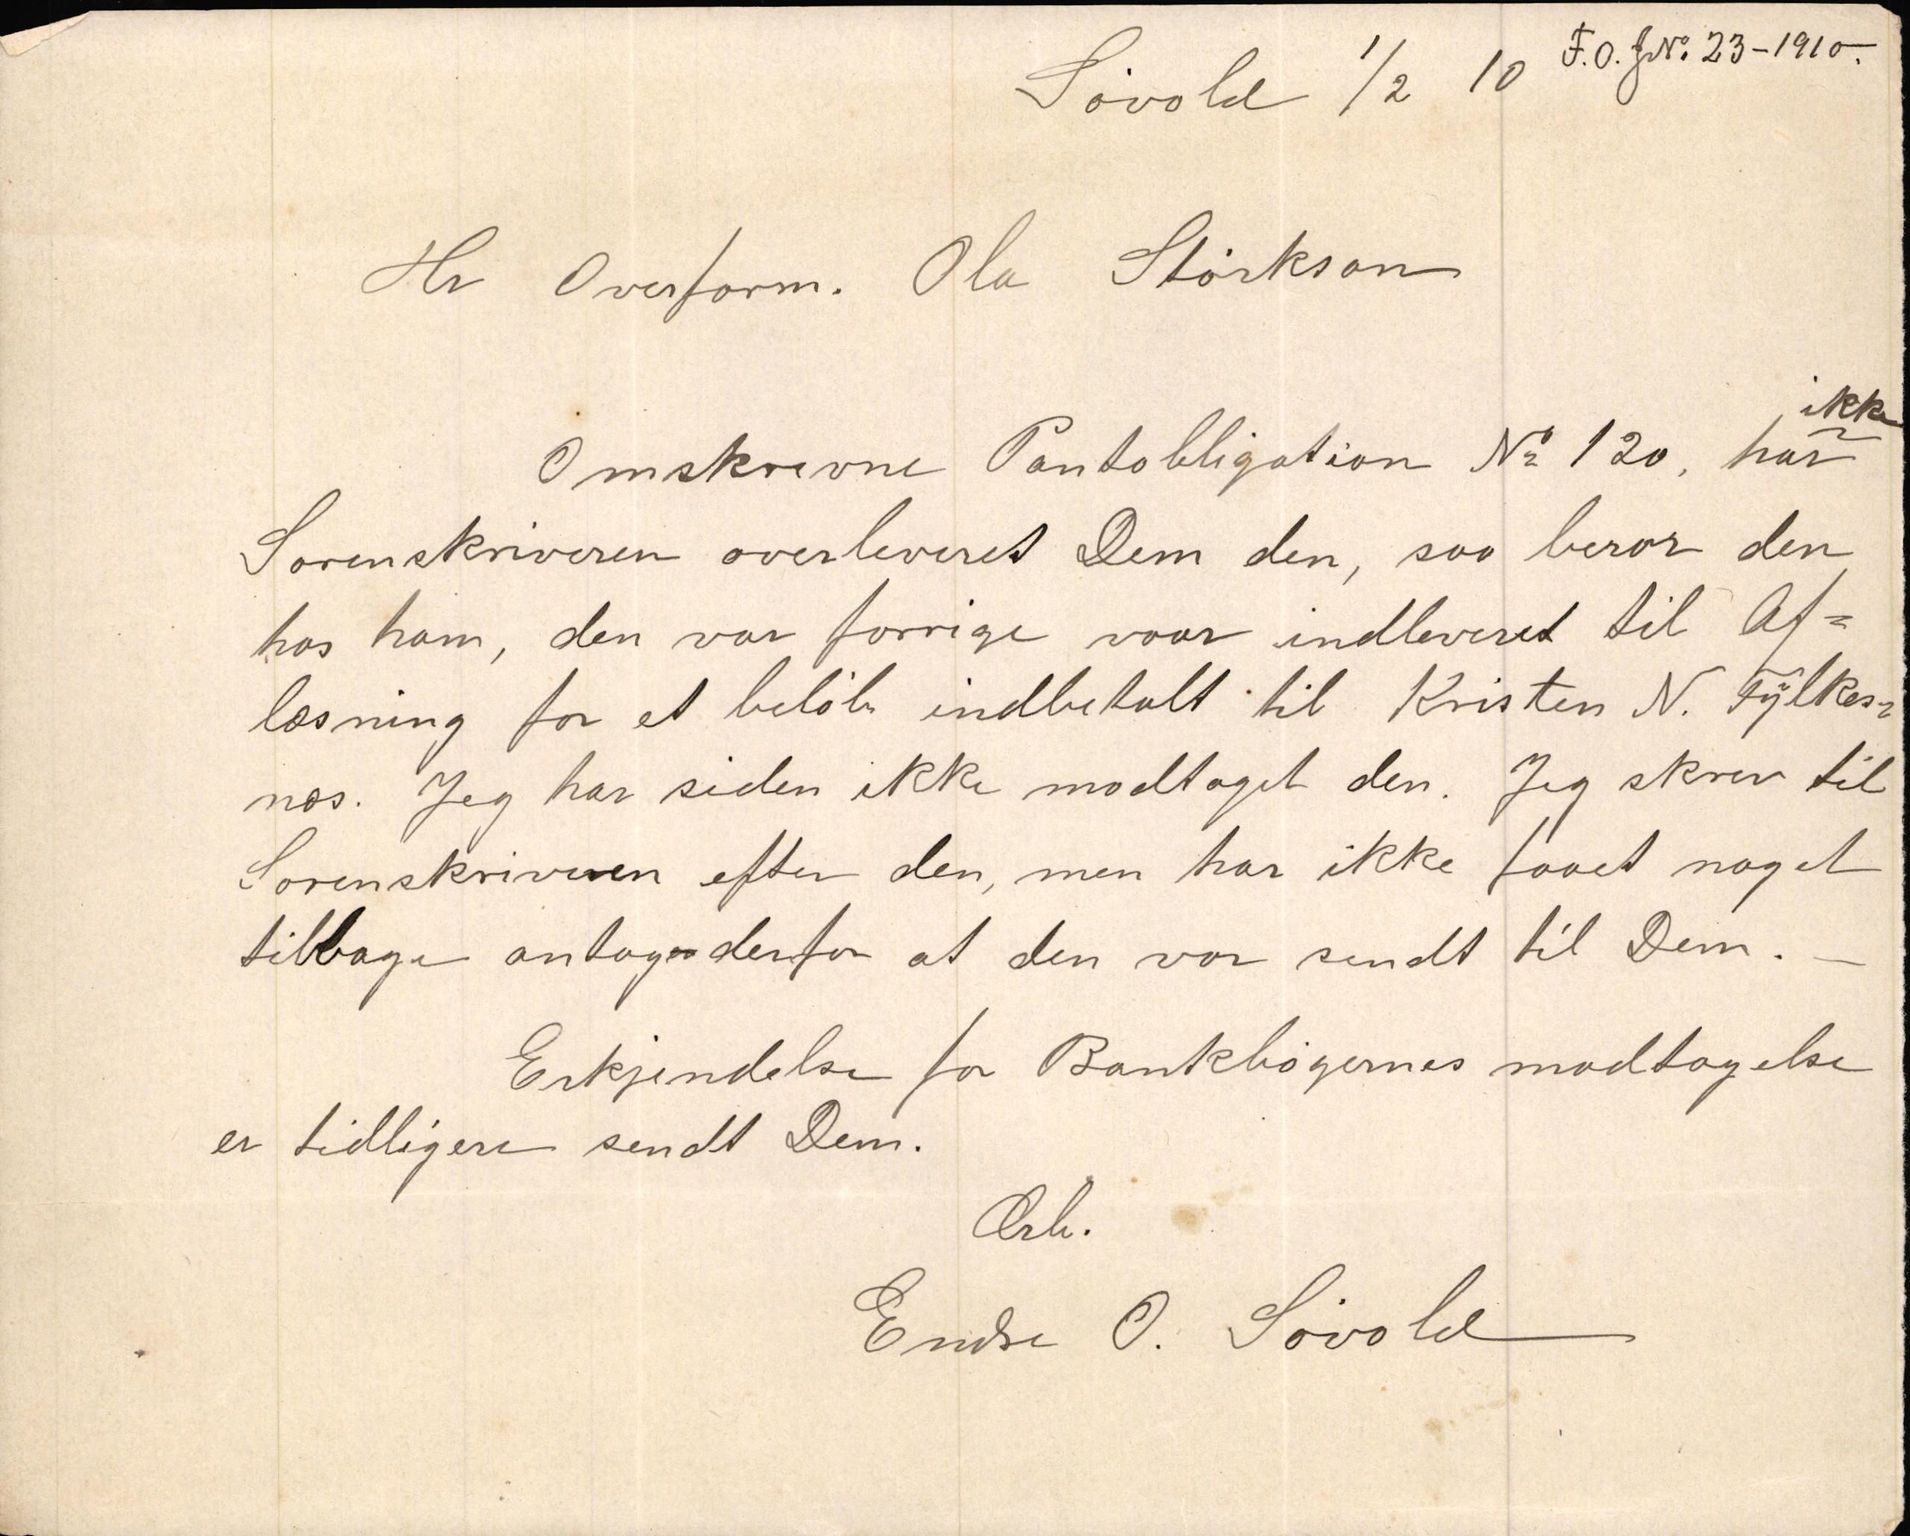 F. O. J№. 23-1910.
Søvold 1/2 10
Hr Overform. Ola Størkson
ikke
Omskrevne Pantobligation № 120, har
Sorenskriveren overleveret Dem den, saa beror den
hos ham, den var forrige vaar indleveret til Af=
læsning for et beløb indbetalt til Kristen N. Fylkes=
næs. Jeg har siden ikke modtaget den. Jeg skrev til
Sorenskriveren efter den, men har ikke faaet noget
tilbage antager derfor at den var sendt til Dem. —
Erkjendelse for Bankbøgernes modtagelse
er tidligere sendt Dem.
Ærb.
Endre O. Søvold